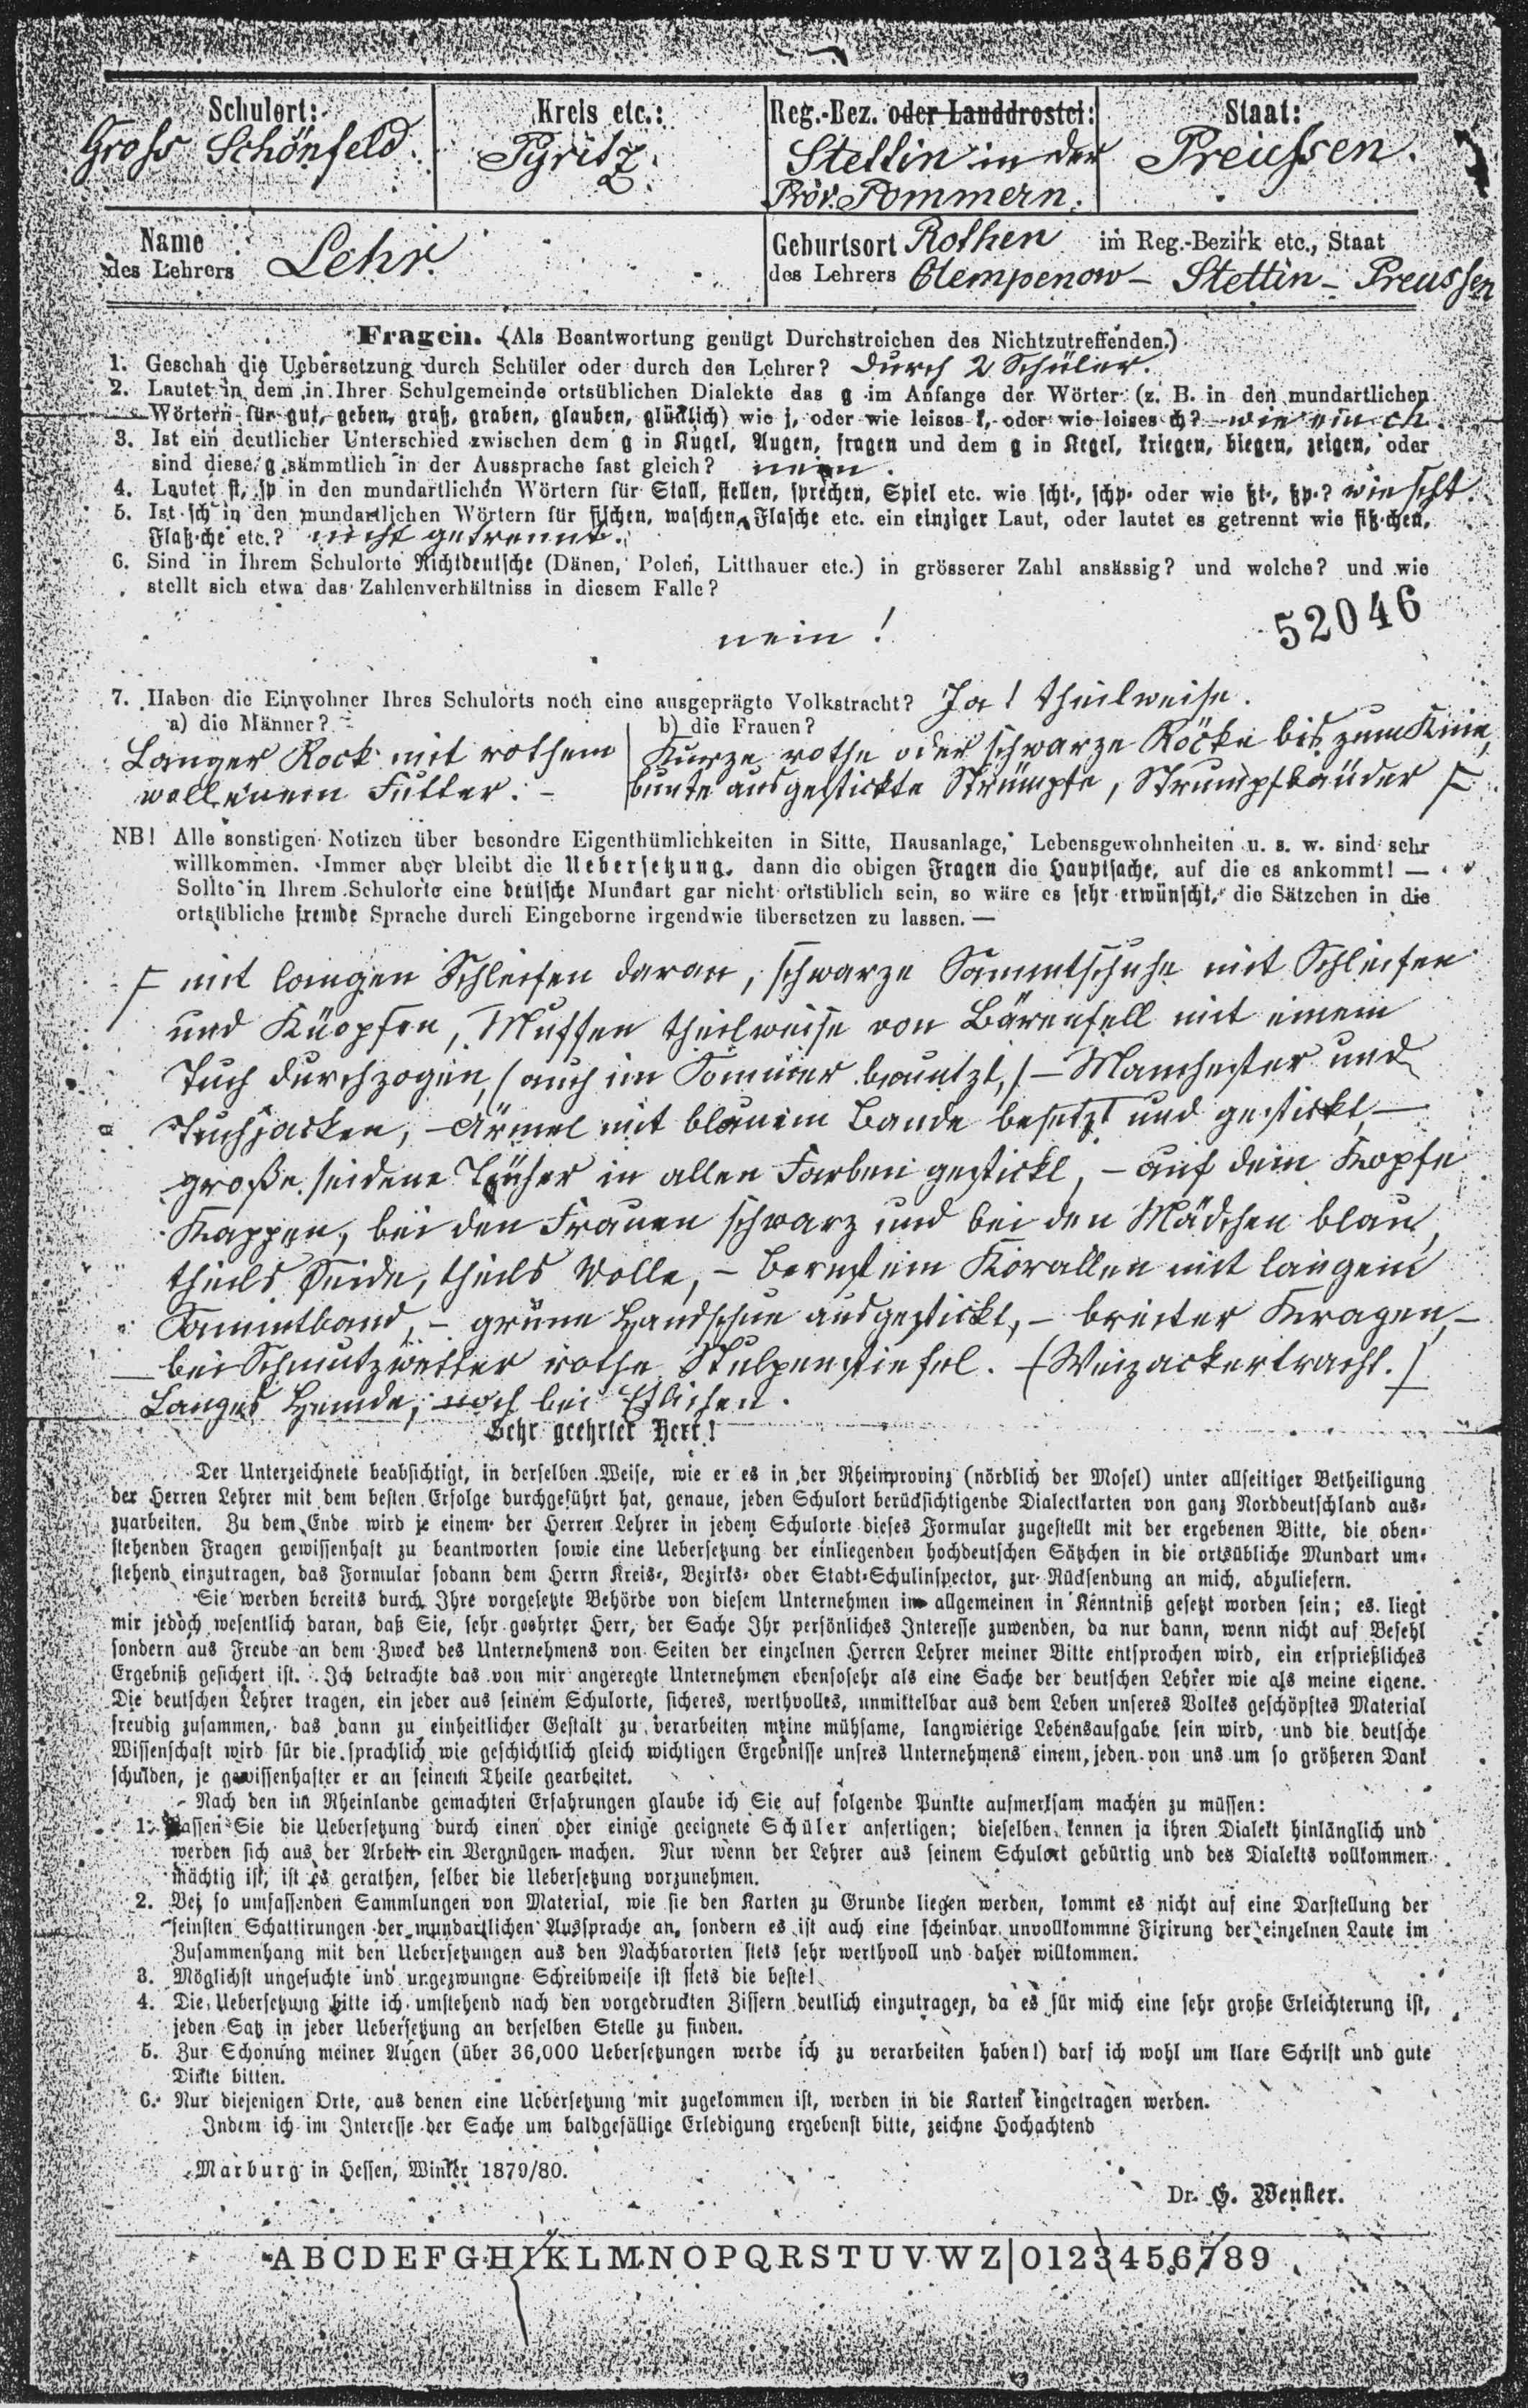 Schulort: Kreis etc.: Reg.-Bez. oder Landdrostei: Staat:
Gross Schönfeld. Pyritz. Stettin in der Preussen.
Prov. Pommern.
Name des Lehrers Lehr. Geburtsort des Lehrers Rothen Clempenow – im Reg.-Bezirk etc., Staat Stettin – Preussen
Fragen. (Als Beantwortung genügt Durchstreichen des Nichtzutreffenden.)
1. Geschah die Uebersetzung durch Schüler oder durch den Lehrer? Durch 2 Schüler.
2. Lautet in dem in Ihrer Schulgemeinde ortsüblichen Dialekte das g im Anfange der Wörter (z. B. in den mundartlichen
Wörtern für gut, geben, groß, graben, glauben, glücklich) wie j, oder wie leises k, oder wie leises ch? wie ein ch.
3. Ist ein deutlicher Unterschied zwischen dem g in Kugel, Augen, fragen und dem g in Kegel, kriegen, biegen, zeigen, oder
sind diese g sämmtlich in der Aussprache fast gleich? nein.
4. Lautet st, sp in den mundartlichen Wörtern für Stall, stellen, sprechen, Spiel etc. wie scht-, schp- oder wie ßt-, ßp-? wie scht.
5. Ist sch in den mundartlichen Wörtern für fischen, waschen, Flasche etc. ein einziger Laut, oder lautet es getrennt wie fiß-chen,
Flaß-che etc.? nicht getrennt.
6. Sind in Ihrem Schulorte Nichtdeutsche (Dänen, Polen, Litthauer etc.) in grösserer Zahl ansässig? und welche? und wie
stellt sich etwa das Zahlenverhältniss in diesem Falle?
nein!
52046
7. Haben die Einwohner Ihres Schulorts noch eine ausgeprägte Volkstracht? Ja! theilweise.
a) die Männer? b) die Frauen?
Langer Rock mit rothem Kurze rothe oder schwarze Röcke bis zum Knie,
wollenem Futter. – bunte ausgestickte Strümpfe, Strumpfbänder F
NB! Alle sonstigen Notizen über besondre Eigenthümlichkeiten in Sitte, Hausanlage, Lebensgewohnheiten u. s. w. sind sehr
willkommen. Immer aber bleibt die Uebersetzung, dann die obigen Fragen die Hauptsache, auf die es ankommt! —
Sollte in Ihrem Schulorte eine deutsche Mundart gar nicht ortsüblich sein, so wäre es sehr erwünscht, die Sätzchen in die
ortsübliche fremde Sprache durch Eingeborne irgendwie übersetzen zu lassen. —
F mit langen Schleifen daran, schwarze Sammtschuhe mit Schleifen
und Knöpfen, Muffen theilweise von Bärenfell mit einem
Tuch durchzogen, (auch im Sommer benutzt,) – Manchester und
Tuchjacken, – Ärmel mit blauem Bande besetzt und gestickt, –
große seidene Tücher in allen Farben gestickt, – auf dem Kopfe
Kappen, bei den Frauen schwarz und bei den Mädchen blau,
theils Seide, theils Wolle, – Bernstein Korallen mit langem
Sammtband, – grüne Handschue ausgestickt, – breiter Kragen, –
bei Schmutzwetter rothe Stulpenstiefel. – (Weizackertracht.)
Langes Hemde, noch bei Etlichen.
Sehr geehrter Herr!
Der Unterzeichnete beabsichtigt, in derselben Weise, wie er es in der Rheinprovinz (nördlich der Mosel) unter allseitiger Betheiligung
der Herren Lehrer mit dem besten Erfolge durchgeführt hat, genaue, jeden Schulort berücksichtigende Dialectkarten von ganz Norddeutschland aus-
zuarbeiten. Zu dem Ende wird je einem der Herren Lehrer in jedem Schulorte dieses Formular zugestellt mit der ergebenen Bitte, die oben-
stehenden Fragen gewissenhaft zu beantworten sowie eine Uebersetzung der einliegenden hochdeutschen Sätzchen in die ortsübliche Mundart um-
stehend einzutragen, das Formular sodann dem Herrn Kreis-, Bezirks- oder Stadt-Schulinspector, zur Rücksendung an mich, abzuliefern.
Sie werden bereits durch Ihre vorgesetzte Behörde von diesem Unternehmen im allgemeinen in Kenntniß gesetzt worden sein; es liegt
mir jedoch wesentlich daran, daß Sie, sehr geehrter Herr, der Sache Ihr persönliches Interesse zuwenden, da nur dann, wenn nicht auf Befehl
sondern aus Freude an dem Zweck des Unternehmens von Seiten der einzelnen Herren Lehrer meiner Bitte entsprochen wird, ein ersprießliches
Ergebniß gesichert ist. Ich betrachte das von mir angeregte Unternehmen ebensosehr als eine Sache der deutschen Lehrer wie als meine eigene.
Die deutschen Lehrer tragen, ein jeder aus seinem Schulorte, sicheres, werthvolles, unmittelbar aus dem Leben unseres Volkes geschöpftes Material
freudig zusammen, das dann zu einheitlicher Gestalt zu verarbeiten meine mühsame, langwierige Lebensaufgabe sein wird, und die deutsche
Wissenschaft wird für die sprachlich wie geschichtlich gleich wichtigen Ergebnisse unsres Unternehmens einem jeden von uns um so größeren Dank
schulden, je gewissenhafter er an seinem Theile gearbeitet.
Nach den im Rheinlande gemachten Erfahrungen glaube ich Sie auf folgende Punkte aufmerksam machen zu müssen:
1. Lassen Sie die Uebersetzung durch einen oder einige geeignete Schüler anfertigen; dieselben kennen ja ihren Dialekt hinlänglich und
werden sich aus der Arbeit ein Vergnügen machen. Nur wenn der Lehrer aus seinem Schulort gebürtig und des Dialekts vollkommen
mächtig ist, ist es gerathen, selber die Uebersetzung vorzunehmen.
2. Bei so umfassenden Sammlungen von Material, wie sie den Karten zu Grunde liegen werden, kommt es nicht auf eine Darstellung der
feinsten Schattirungen der mundartlichen Aussprache an, sondern es ist auch eine scheinbar unvollkommne Fixirung der einzelnen Laute im
Zusammenhang mit den Uebersetzungen aus den Nachbarorten stets sehr werthvoll und daher willkommen.
3. Möglichst ungesuchte und ungezwungne Schreibweise ist stets die beste!
4. Die Uebersetzung bitte ich umstehend nach den vorgedruckten Ziffern deutlich einzutragen, da es für mich eine sehr große Erleichterung ist,
jeden Satz in jeder Uebersetzung an derselben Stelle zu finden.
5. Zur Schonung meiner Augen (über 36,000 Uebersetzungen werde ich zu verarbeiten haben!) darf ich wohl um klare Schrift und gute
Dinte bitten.
6. Nur diejenigen Orte, aus denen eine Uebersetzung mir zugekommen ist, werden in die Karten eingetragen werden.
Indem ich im Interesse der Sache um baldgefällige Erledigung ergebenst bitte, zeichne Hochachtend
Marburg in Hessen, Winter 1879/80.
Dr. G. Wenker.
A B C D E F G H I K L M N O P Q R S T U V W Z | 0 1 2 3 4 5 6 7 8 9